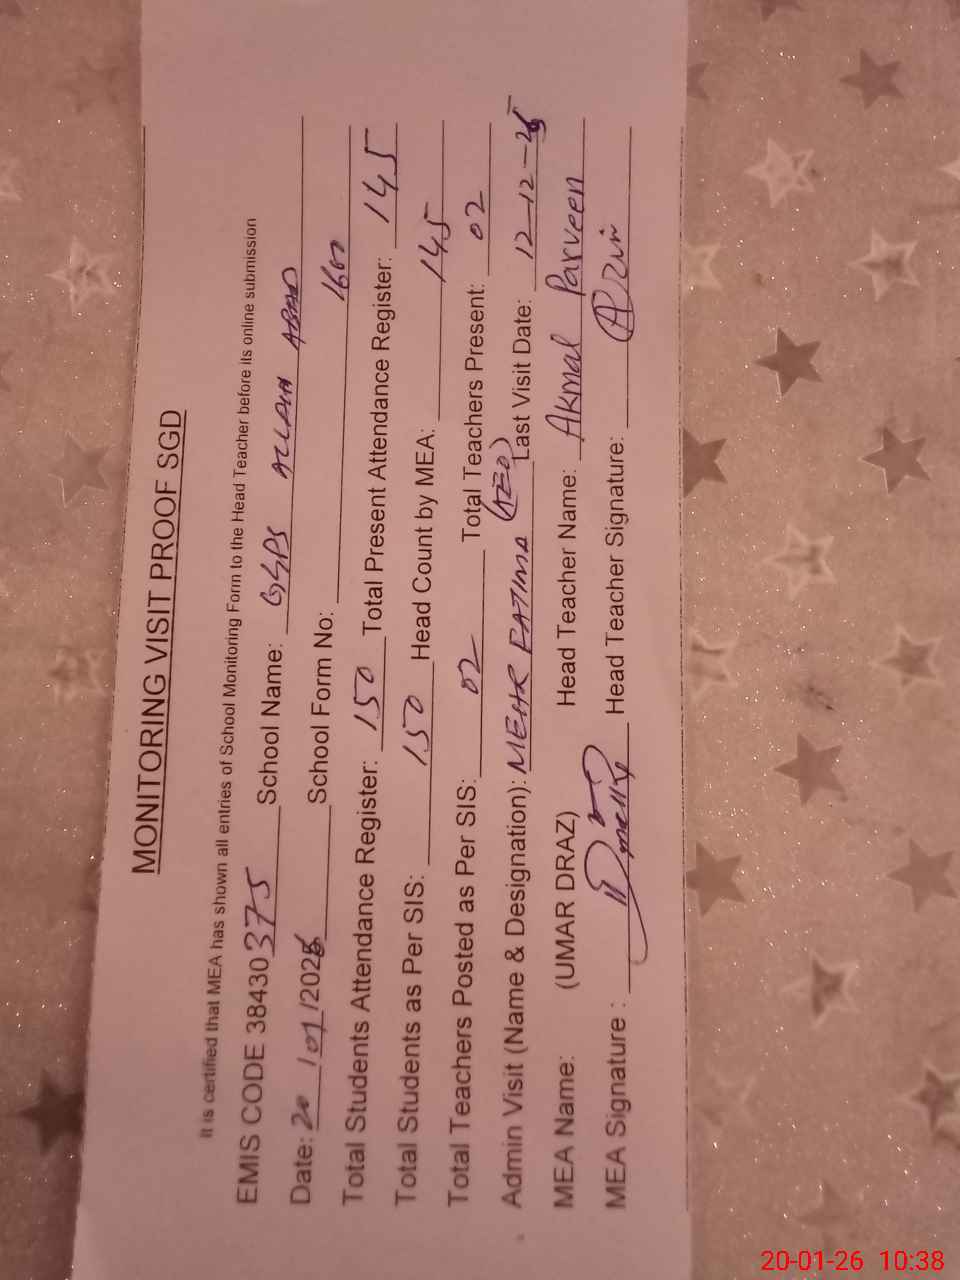 MONITORING VISIT PROOF SGD
It is certified that MEA has shown all entries of School Monitoring Form to the Head Teacher before its online submission
EMIS CODE 38430375 School Name: GGPS ALLAH ABAD
Date: 20/01/2026 School Form No: 1600
Total Students Attendance Register: 150 Total Present Attendance Register: 145
Total Students as Per SIS: 150 Head Count by MEA: 145
Total Teachers Posted as Per SIS: 02 Total Teachers Present: 02
Admin Visit (Name & Designation): MEHR FATIMA (AEO) Last Visit Date: 12-12-25
MEA Name: (UMAR DRAZ) Head Teacher Name: Akmal Parveen
MEA Signature : Head Teacher Signature:
20-01-26 10:38